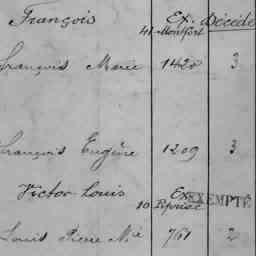 François Ex. Décédé
41 Montfort
François Marie 1420 3
François Eugène 1209 3
Victor Louis Ex. EXEMPTÉ
10
Louis Pierre Mie 761 2